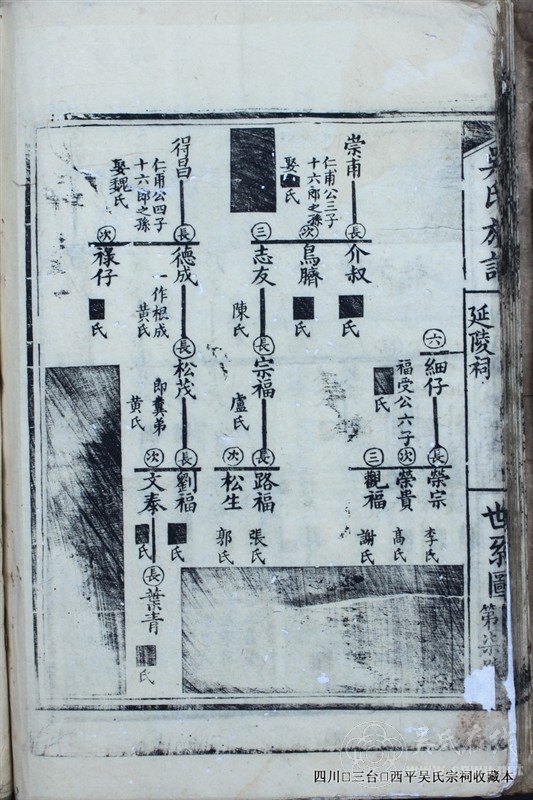 吳氏族譜
延陵祠
世系圖
第柒
六
細仔
福受公六子
氏
長
榮宗
李氏
次
榮貴
高氏
三
觀福
謝氏
崇甫
仁甫公三子
十六郎之孫
娶 氏
長
介叔
氏
次
烏臍
氏
三
志友
陳氏
長
宗福
盧氏
長
路福
張氏
次
松生
郭氏
得昌
仁甫公四子
十六郎之孫
娶魏氏
長
德成
一作根成
黃氏
次
祿仔
氏
長
松茂
即糞弟
黃氏
長
劉福
氏
次
文奉
氏
長
葉青
氏
四川□三台□西平吴氏宗祠收藏本